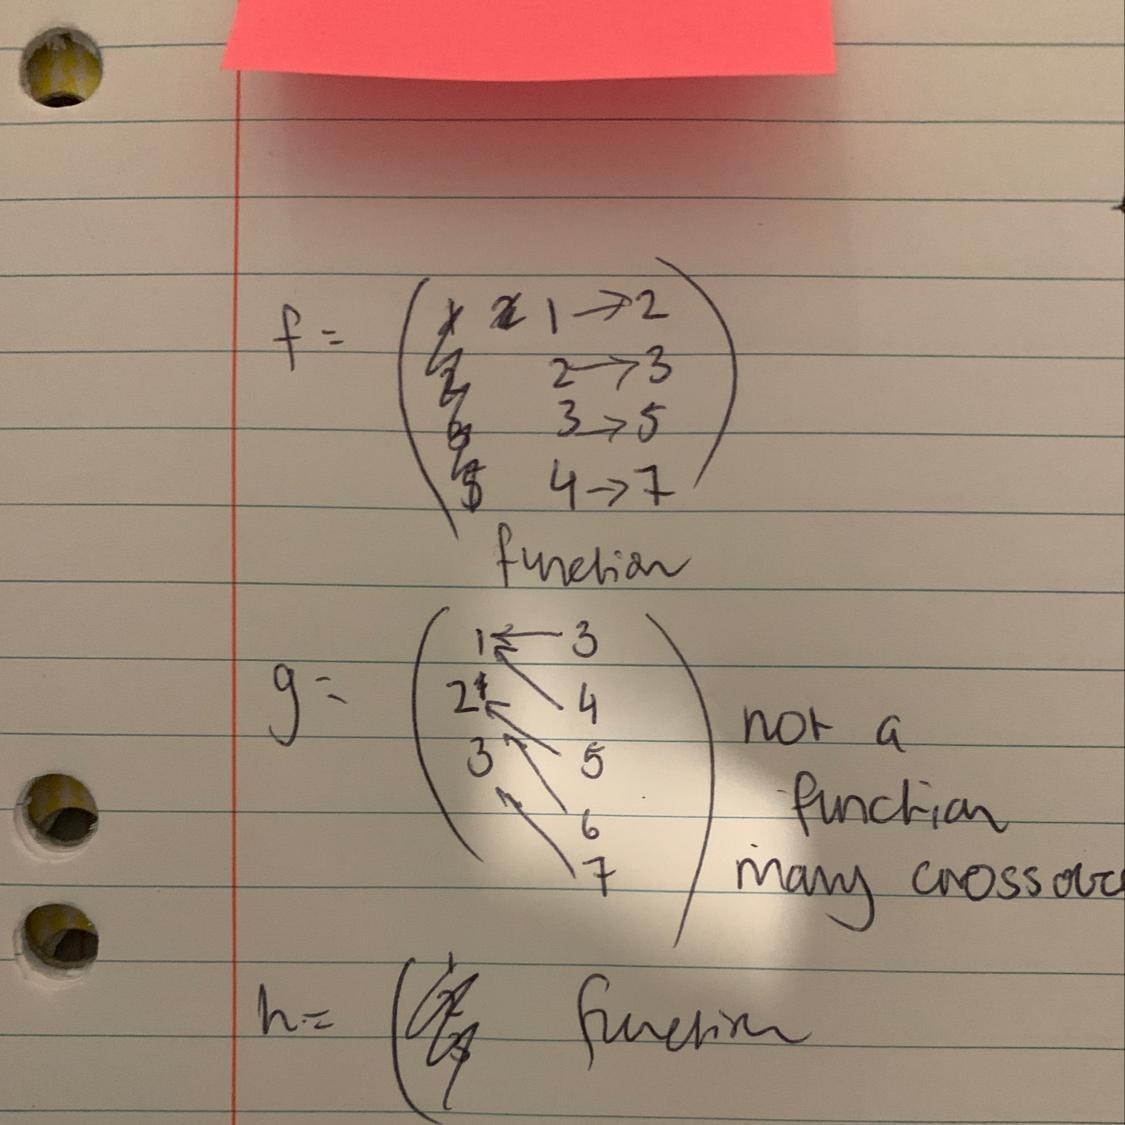 f = ( 1 → 2
2 → 3
3 → 5
4 → 7 )
function
g = ( 1 ← 3
2 4
3 5
6
7 )
not a
function
many crossove
h = ( function